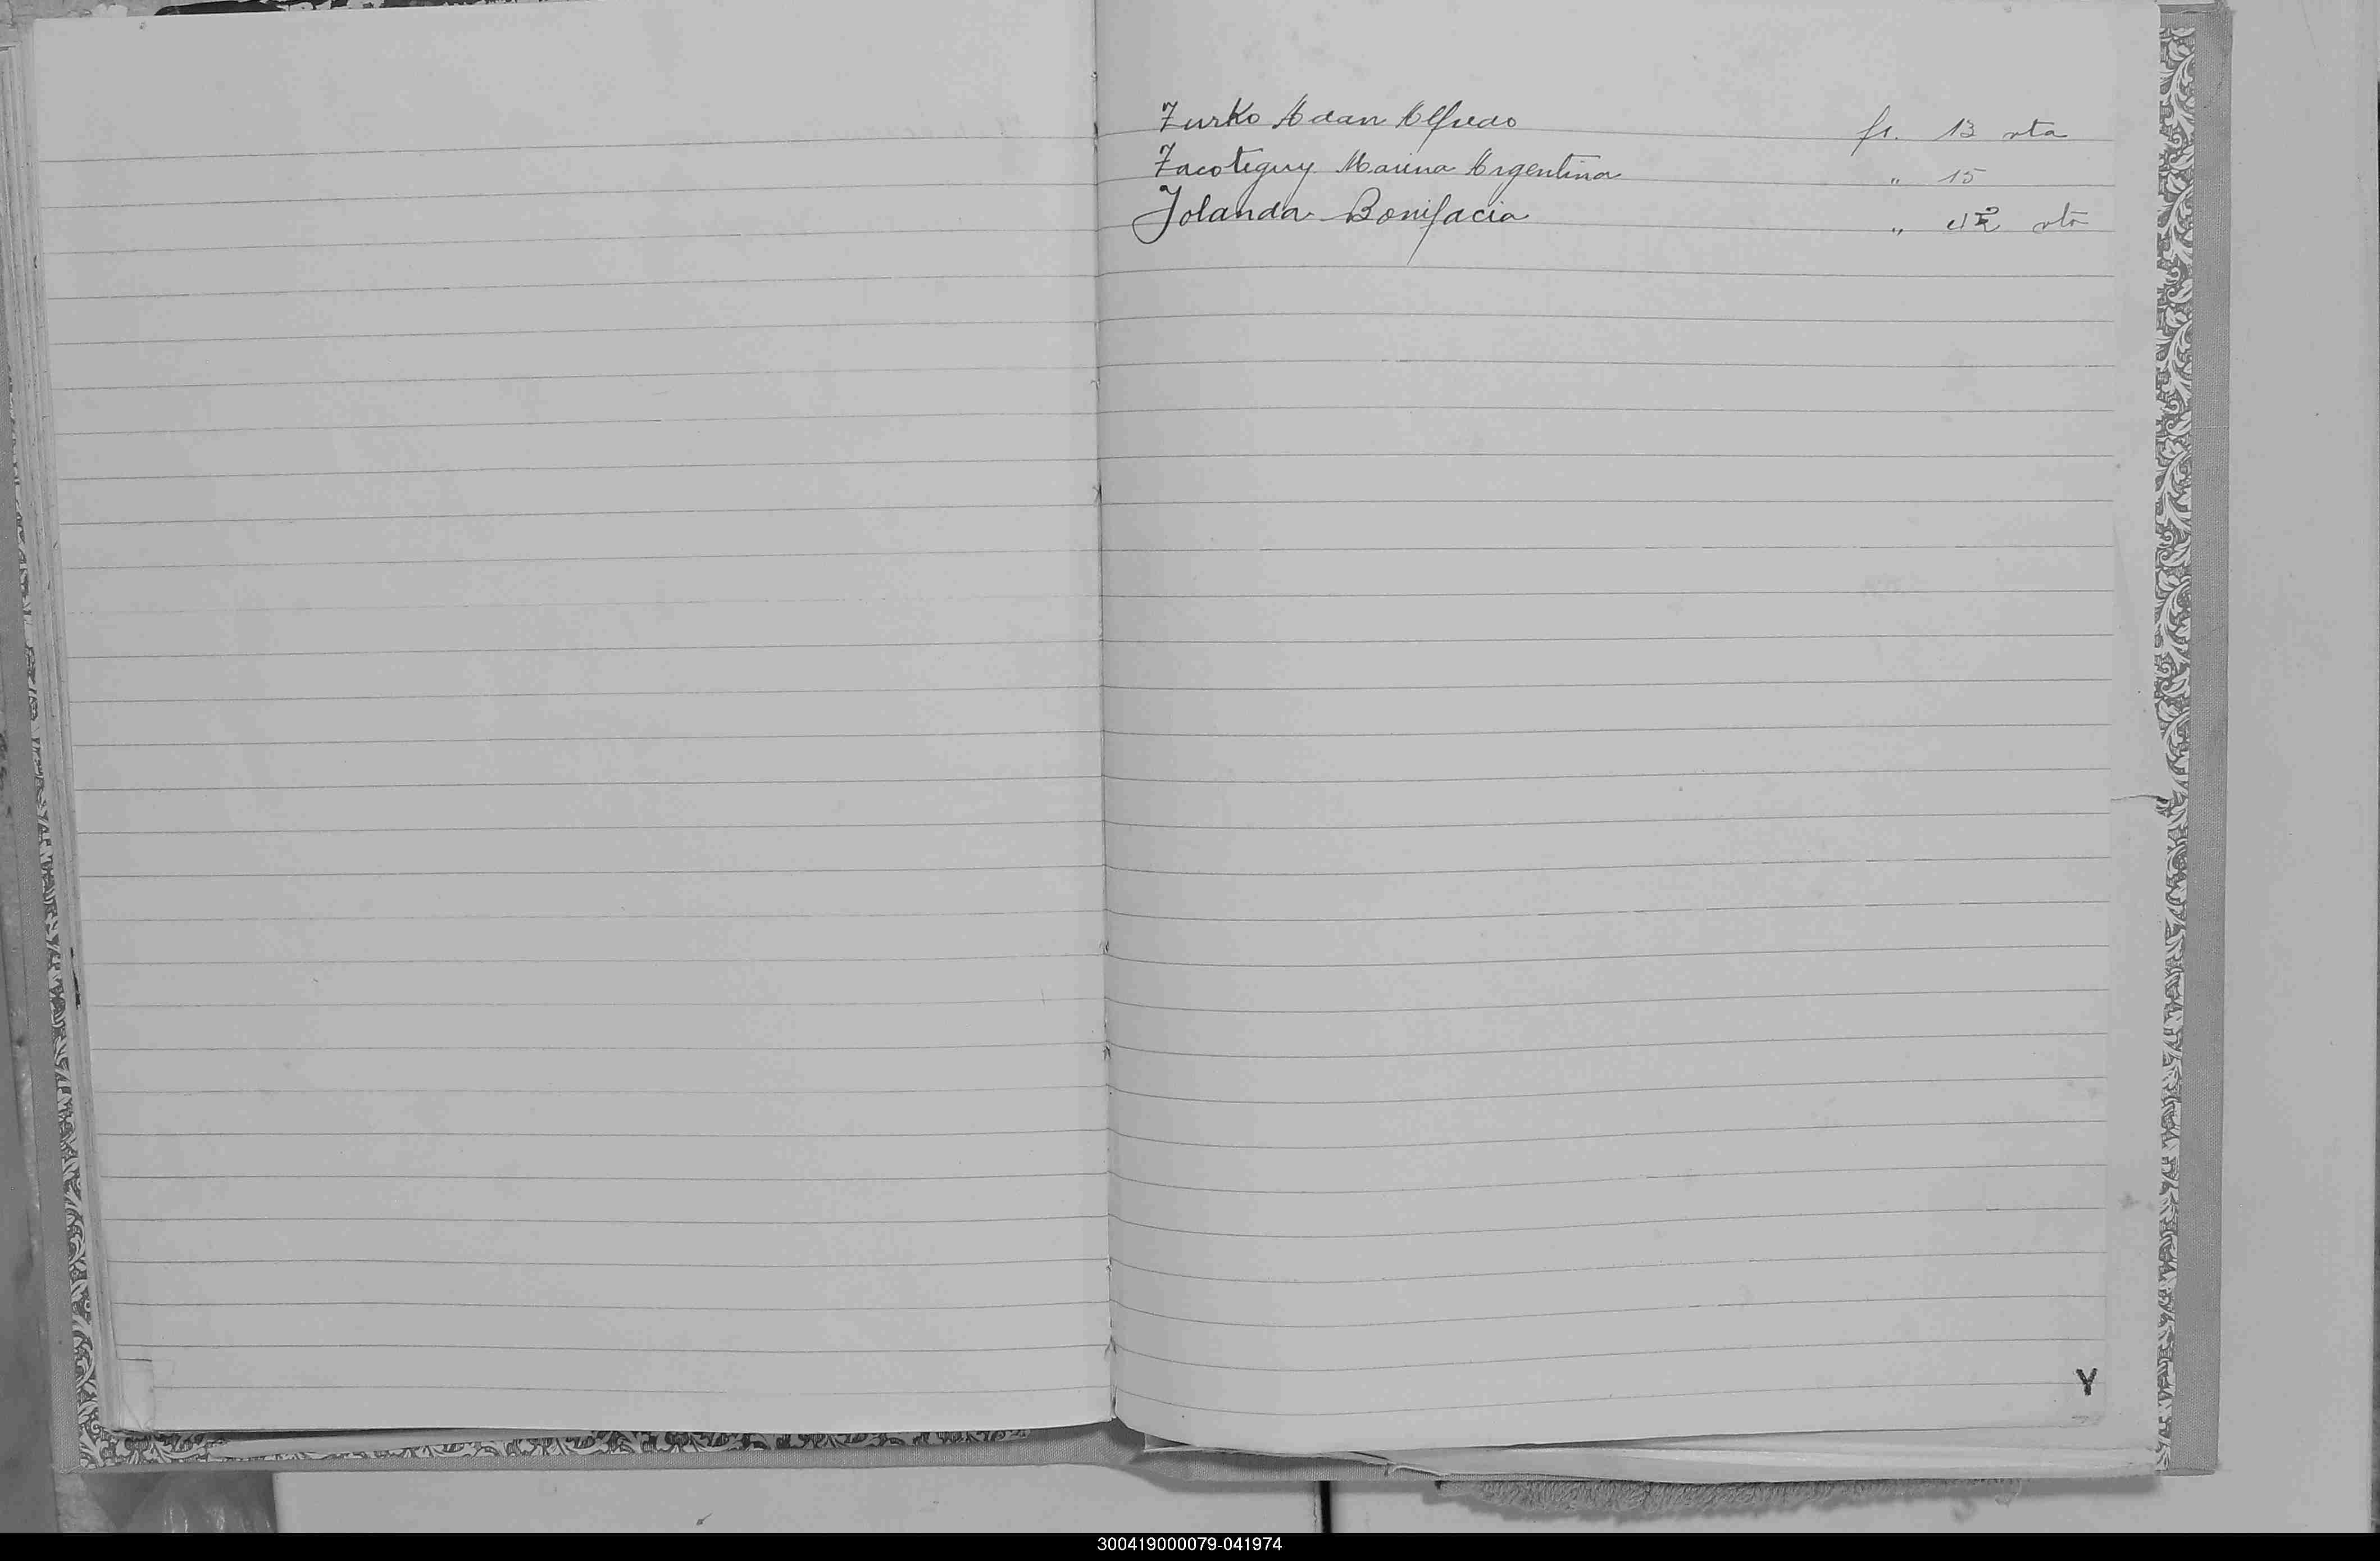 Zurko Adan Alfredo fs. 13 vta
Zacoteguy Marina Argentina " 15
Jolanda Bonifacia " vta
Y
300419000079-041974